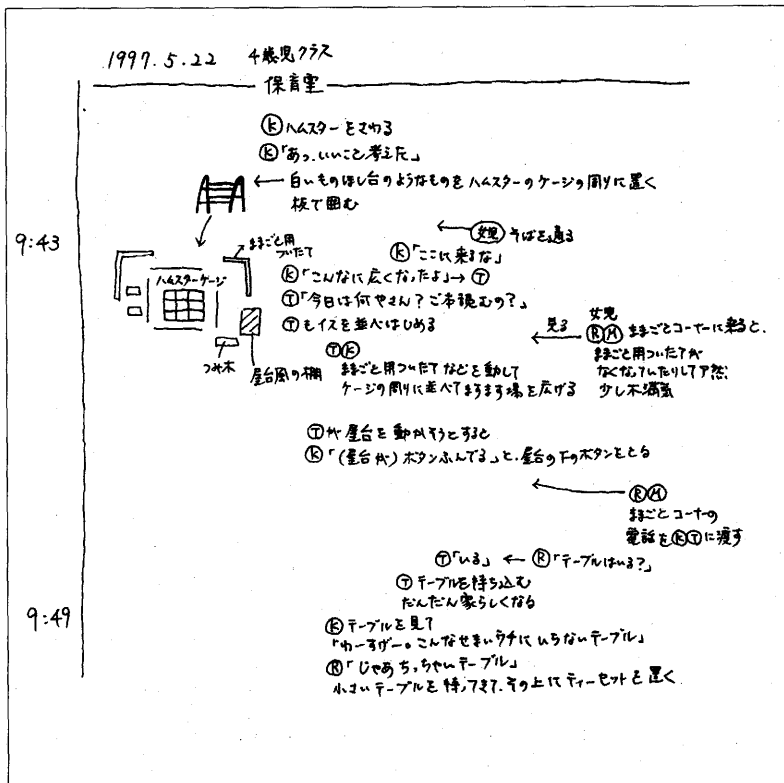 1997.5.22 4歳児クラス
保育室
Ⓚハムスターをさわる
Ⓚ「あっ、いいこと考えた」
← 白いものほし台のようなものをハムスターのケージの周りに置く
板で囲む
9:43
← 女児 そばを通る
Ⓚ「ここに来るな」
ままごと用
ついたて
ハムスターケージ
つみ木
屋台風の棚
Ⓚ「こんなに広くなったよ」→Ⓣ
Ⓣ「今日は何やさん？ご本読むの？」
Ⓣもイスを並べはじめる
ⓉⓀ
ままごと用ついたてなどを動して
ケージの周りに並べてますます場を広げる
← 見る
女児
ⓇⓂままごとコーナーに来ると、
ままごと用ついたてが
なくなっていたりしてア然
少し不満気
Ⓣが屋台を動かそうとすると
Ⓚ「(屋台が)ボタンふんでる」と、屋台の下のボタンをとる
← ⓇⓂ
ままごとコーナーの
電話をⓀⓉに渡す
Ⓣ「いる」← Ⓡ「テーブルはいる？」
Ⓣテーブルを持ち込む
だんだん家らしくなる
9:49
Ⓚテーブルを見て
「わーすげー。こんなせまいウチにいらないテーブル」
Ⓡ「じゃあちっちゃいテーブル」
小さいテーブルを持ってきて、その上にティーセットを置く